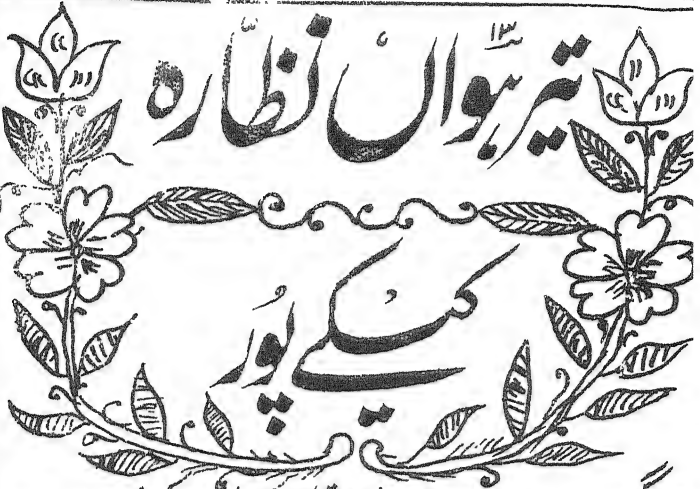 تیرہواں نظّارہ
۱۳
کیکے پُور